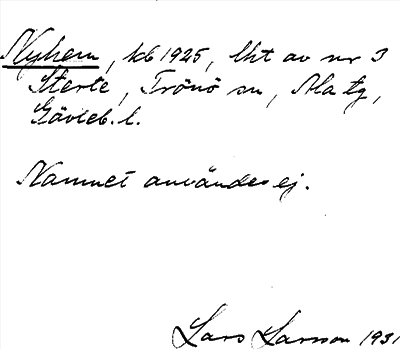 Nyhem, kb 1925, lht av nr 3
Sterte, Trönö sn, Ala tg,
Gävleb. l.
Namnet användes ej.
Lars Larsson 1931